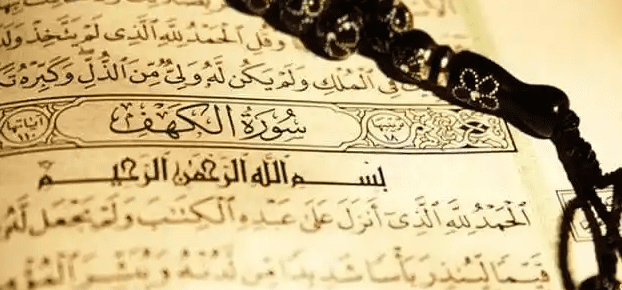 وَقُلِ ٱلْحَمْدُ لِلَّهِ ٱلَّذِى لَمْ يَتَّخِذْ وَلَ
فِى ٱلْمُلْكِ وَلَمْ يَكُن لَّهُۥ وَلِىٌّ مِّنَ ٱلذُّلِّ وَكَبِّرْهُ تَ
ترتيبها ١٨ سُورَةُ الكَهْفِ آياتها ١١٠
بِسْمِ ٱللَّهِ ٱلرَّحْمَٰنِ ٱلرَّحِيمِ
ٱلْحَمْدُ لِلَّهِ ٱلَّذِىٓ أَنزَلَ عَلَىٰ عَبْدِهِ ٱلْكِتَٰبَ وَلَمْ يَجْعَل لَّهُۥ
قَيِّمًا لِّيُنذِرَ بَأْسًا شَدِيدًا مِّن لَّدُنْهُ وَيُبَشِّرَ ٱلْمُؤْ